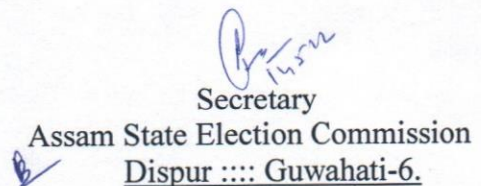 Secretary
Assam State Election Commission
Dispur :::: Guwahati-6.